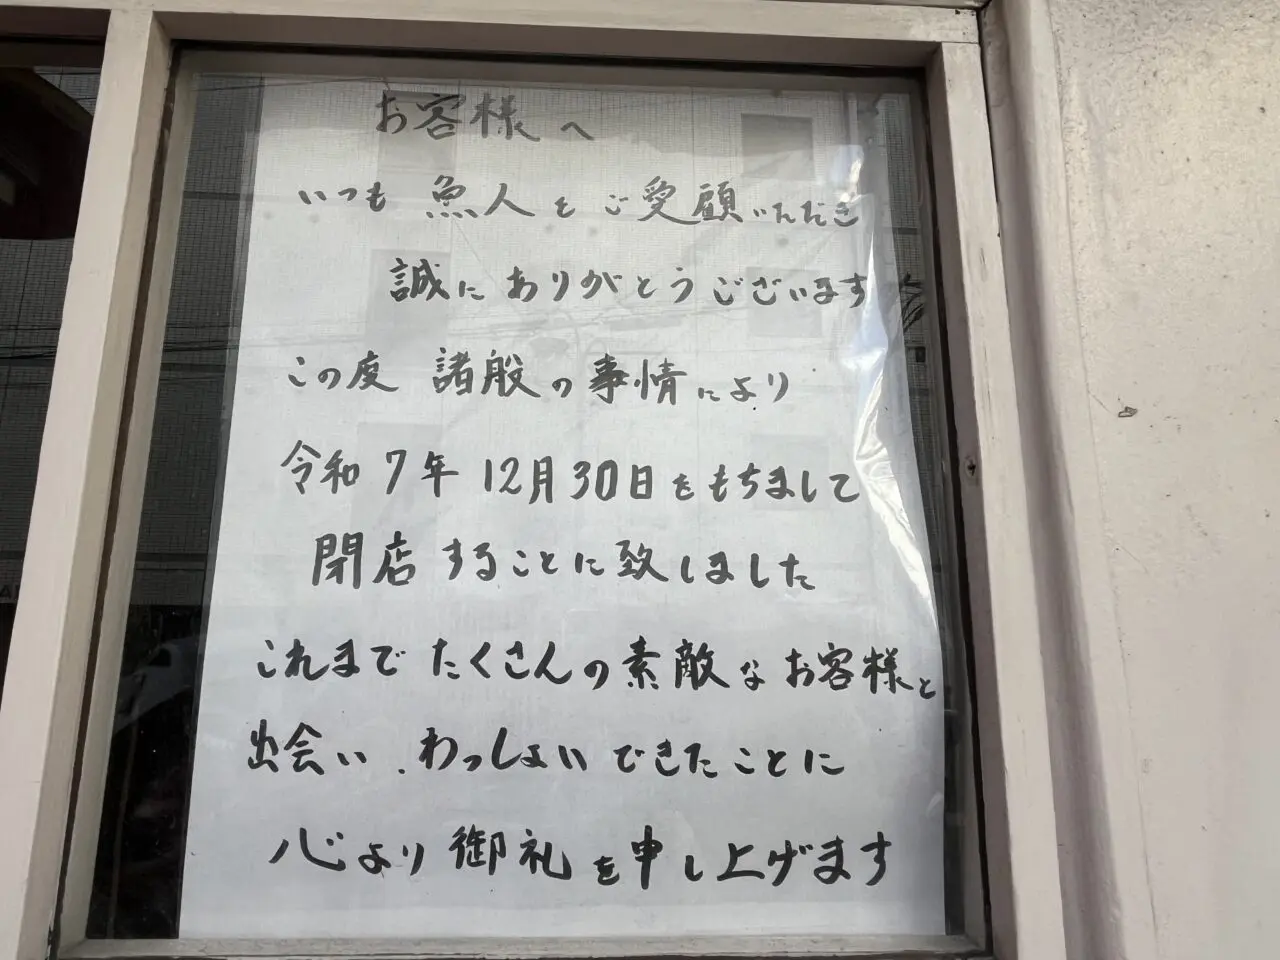 お客様へ
いつも魚人をご愛顧いただき
誠にありがとうございます
この度 諸般の事情により
令和7年12月30日をもちまして
閉店することに致しました
これまでたくさんの素敵なお客様と
出会い、わっしょいできたことに
心より御礼を申し上げます